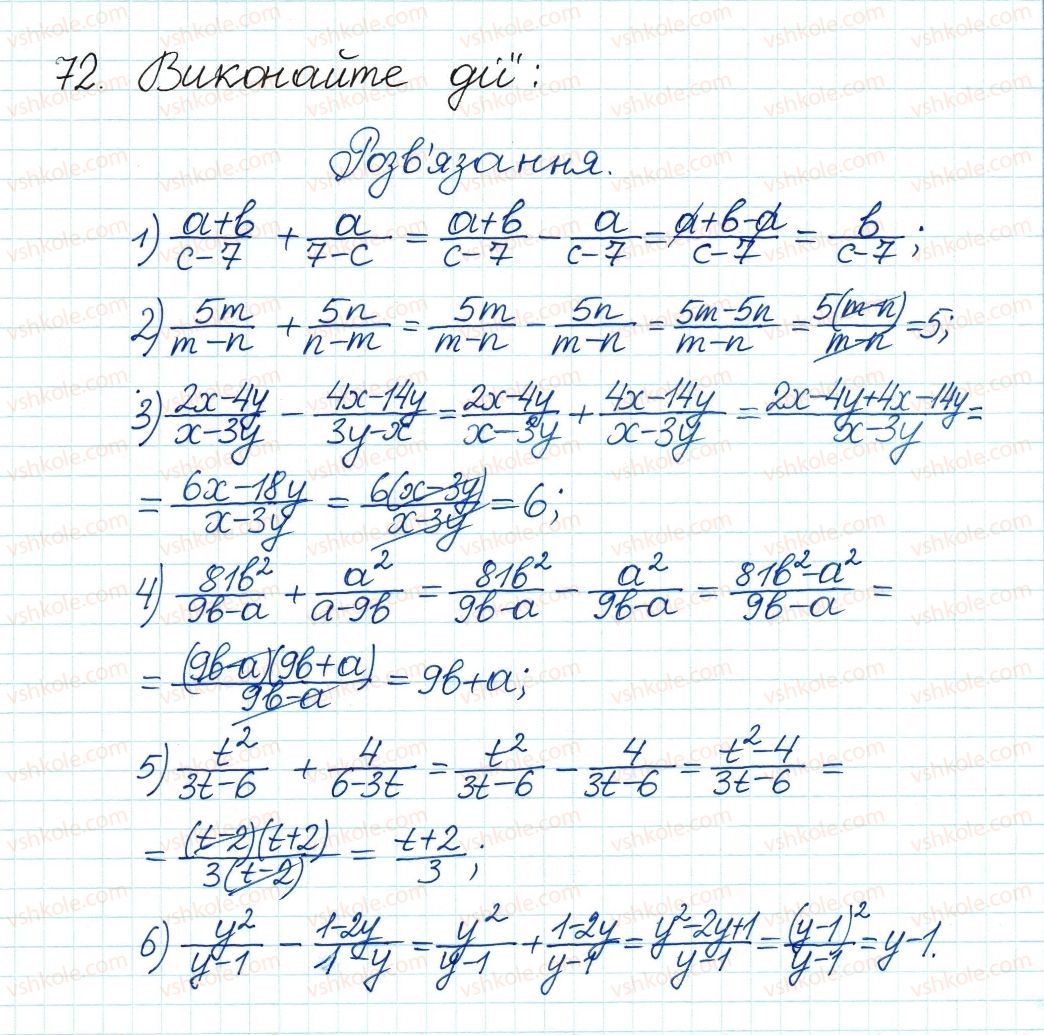 72. Виконайте дії:
Розв'язання.
1) (a+b)/(c-7) + a/(7-c) = (a+b)/(c-7) - a/(c-7) = (a+b-a)/(c-7) = b/(c-7);
2) 5m/(m-n) + 5n/(n-m) = 5m/(m-n) - 5n/(m-n) = (5m-5n)/(m-n) = 5(m-n)/(m-n) = 5;
3) (2x-4y)/(x-3y) - (4x-14y)/(3y-x) = (2x-4y)/(x-3y) + (4x-14y)/(x-3y) = (2x-4y+4x-14y)/(x-3y) =
= (6x-18y)/(x-3y) = 6(x-3y)/(x-3y) = 6;
4) 81b²/(9b-a) + a²/(a-9b) = 81b²/(9b-a) - a²/(9b-a) = (81b²-a²)/(9b-a) =
= (9b-a)(9b+a)/(9b-a) = 9b+a;
5) t²/(3t-6) + 4/(6-3t) = t²/(3t-6) - 4/(3t-6) = (t²-4)/(3t-6) =
= (t-2)(t+2)/3(t-2) = (t+2)/3;
6) y²/(y-1) - (1-2y)/(1-y) = y²/(y-1) + (1-2y)/(y-1) = (y²-2y+1)/(y-1) = (y-1)²/(y-1) = y-1.